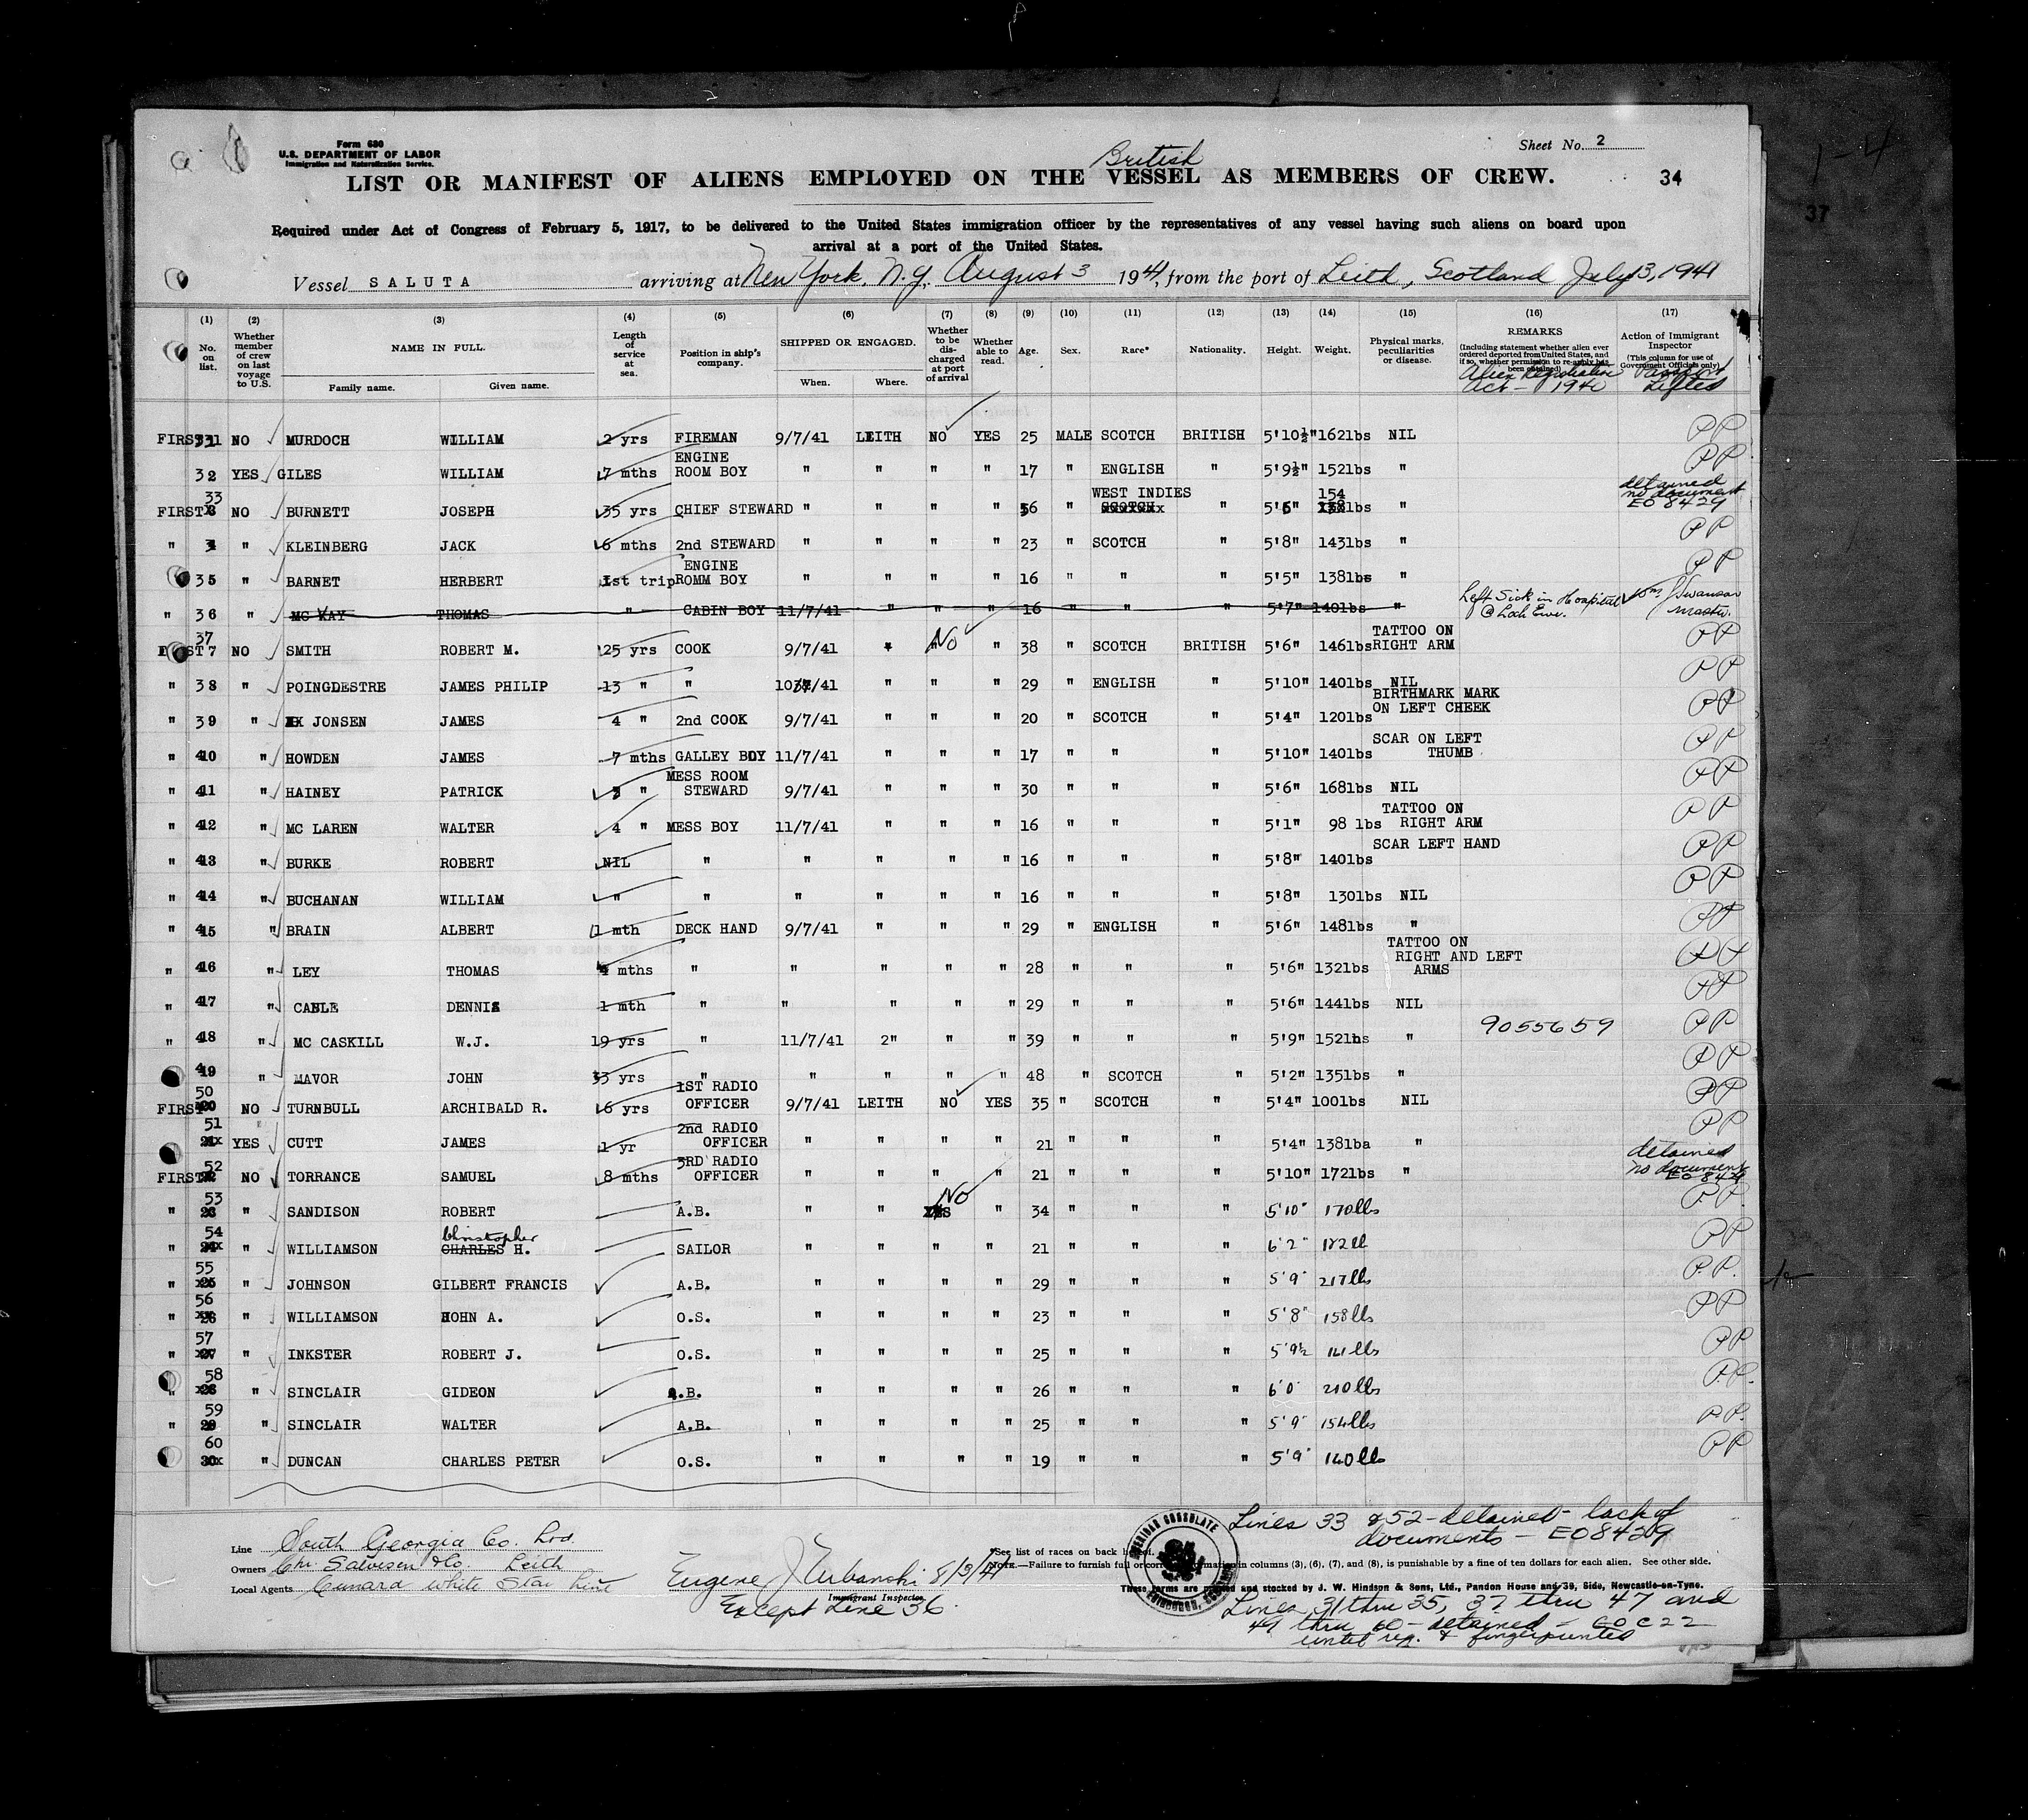 Form 680
U.S. DEPARTMENT OF LABOR
Immigration and Naturalization Service.
Sheet No. 2
British
LIST OR MANIFEST OF ALIENS EMPLOYED ON THE VESSEL AS MEMBERS OF CREW.
34
37
Required under Act of Congress of February 5, 1917, to be delivered to the United States immigration officer by the representatives of any vessel having such aliens on board upon
arrival at a port of the United States.
Vessel SALUTA arriving at New York, N.Y. August 3 1941, from the port of Leith, Scotland July 13, 1941
(1) (2) (3) (4) (5) (6) (7) (8) (9) (10) (11) (12) (13) (14) (15) (16) (17)
No. on list.
Whether member of crew on last voyage to U.S.
NAME IN FULL.
Family name. Given name.
Length of service at sea.
Position in ship's company.
SHIPPED OR ENGAGED.
When. Where.
Whether to be discharged at port of arrival
Whether able to read.
Age.
Sex.
Race*
Nationality.
Height.
Weight.
Physical marks, peculiarities or disease.
REMARKS
(Including statement whether alien ever ordered deported from United States, and if so, whether permission to re-apply has been obtained)
Alien Registration Act - 1940
Action of Immigrant Inspector
(This column for use of Government Officials only)
Lifted
FIRST 31 NO MURDOCH WILLIAM 2 yrs FIREMAN 9/7/41 LEITH NO YES 25 MALE SCOTCH BRITISH 5'10½" 162lbs NIL PP
32 YES GILES WILLIAM 7 mths ENGINE ROOM BOY " " " " 17 " ENGLISH " 5'9½" 152lbs " PP
FIRST 33 NO BURNETT JOSEPH 35 yrs CHIEF STEWARD " " " " 56 " WEST INDIES SCOTCH " 5'6" 154 lbs " detained no document EO 8429
" 34 " KLEINBERG JACK 6 mths 2nd STEWARD " " " " 23 " SCOTCH " 5'8" 143lbs " PP
35 " BARNET HERBERT 1st trip ENGINE ROMM BOY " " " " 16 " " " 5'5" 138lbs " PP
" 36 " MC KAY THOMAS " CABIN BOY 11/7/41 " " " 16 " " " 5'7" 140lbs " Left Sick in Hospital @ Loch Ewe. Swanson Master.
FIRST 37 NO SMITH ROBERT M. 25 yrs COOK 9/7/41 " No " 38 " SCOTCH BRITISH 5'6" 146lbs TATTOO ON RIGHT ARM PP
" 38 " POINGDESTRE JAMES PHILIP 13 " " 10/7/41 " " " 29 " ENGLISH " 5'10" 140lbs NIL PP
" 39 " JONSEN JAMES 4 " 2nd COOK 9/7/41 " " " 20 " SCOTCH " 5'4" 120lbs BIRTHMARK MARK ON LEFT CHEEK PP
" 40 " HOWDEN JAMES 7 mths GALLEY BOY 11/7/41 " " " 17 " " " 5'10" 140lbs SCAR ON LEFT THUMB PP
" 41 " HAINEY PATRICK 3 " MESS ROOM STEWARD 9/7/41 " " " 30 " " " 5'6" 168lbs NIL PP
" 42 " MC LAREN WALTER 4 " MESS BOY 11/7/41 " " " 16 " " " 5'1" 98 lbs TATTOO ON RIGHT ARM PP
" 43 " BURKE ROBERT NIL " " " " " 16 " " " 5'8" 140lbs SCAR LEFT HAND PP
" 44 " BUCHANAN WILLIAM " " " " " " 16 " " " 5'8" 130lbs NIL PP
" 45 " BRAIN ALBERT 1 mth DECK HAND 9/7/41 " " " 29 " ENGLISH " 5'6" 148lbs " PP
" 46 " LEY THOMAS 4 mths " " " " " 28 " " " 5'6" 132lbs TATTOO ON RIGHT AND LEFT ARMS PP
" 47 " CABLE DENNIS 1 mth " " " " " 29 " " " 5'6" 144lbs NIL PP
" 48 " MC CASKILL W.J. 19 yrs " 11/7/41 2" " " 39 " " " 5'9" 152lbs " 9055659 PP
49 " MAVOR JOHN 33 yrs " " " " " 48 " SCOTCH " 5'2" 135lbs " PP
FIRST 50 NO TURNBULL ARCHIBALD R. 6 yrs 1ST RADIO OFFICER 9/7/41 LEITH NO YES 35 " SCOTCH " 5'4" 100lbs NIL PP
51 YES CUTT JAMES 1 yr 2nd RADIO OFFICER " " " " 21 " " " 5'4" 138lba " PP
FIRST 52 NO TORRANCE SAMUEL 8 mths 3RD RADIO OFFICER " " " " 21 " " " 5'10" 172lbs " detained no document EO 8429
" 53 " SANDISON ROBERT A.B. " " YES No " 34 " " " 5'10" 170lbs PP
" 54 " WILLIAMSON CHARLES Christopher H. SAILOR " " " " 21 " " " 6'2" 182lb PP
" 55 " JOHNSON GILBERT FRANCIS A.B. " " " " 29 " " " 5'9" 217lbs P.P.
" 56 " WILLIAMSON JOHN A. O.S. " " " " 23 " " " 5'8" 158lbs PP
" 57 " INKSTER ROBERT J. O.S. " " " " 25 " " " 5'9½ 141lbs PP
" 58 " SINCLAIR GIDEON A.B. " " " " 26 " " " 6'0" 210lbs P.P.
" 59 " SINCLAIR WALTER A.B. " " " " 25 " " " 5'9" 154lbs P.P.
60 " DUNCAN CHARLES PETER O.S. " " " " 19 " " " 5'9" 140lb PP
Line South Georgia Co. Ltd.
Owners Chr. Salvesen & Co. Leith
Local Agents Cunard White Star Line
Eugene J Urbanski 8/3/41
Immigrant Inspector
Except Line 36.
AMERICAN CONSULATE
EDINBURGH, SCOTLAND
Lines 33 & 52 - detained - lack of
documents - EO 8429
*See list of races on back hereof.
NOTE.—Failure to furnish full or correct information in columns (3), (6), (7), and (8), is punishable by a fine of ten dollars for each alien. See other side.
These forms are printed and stocked by J. W. Hindson & Sons, Ltd., Pandon House and 39, Side, Newcastle-on-Tyne.
Lines 31 thru 35, 37 thru 47 and
49 thru 60 - detained - GO C 22
until reg. & fingerprinted